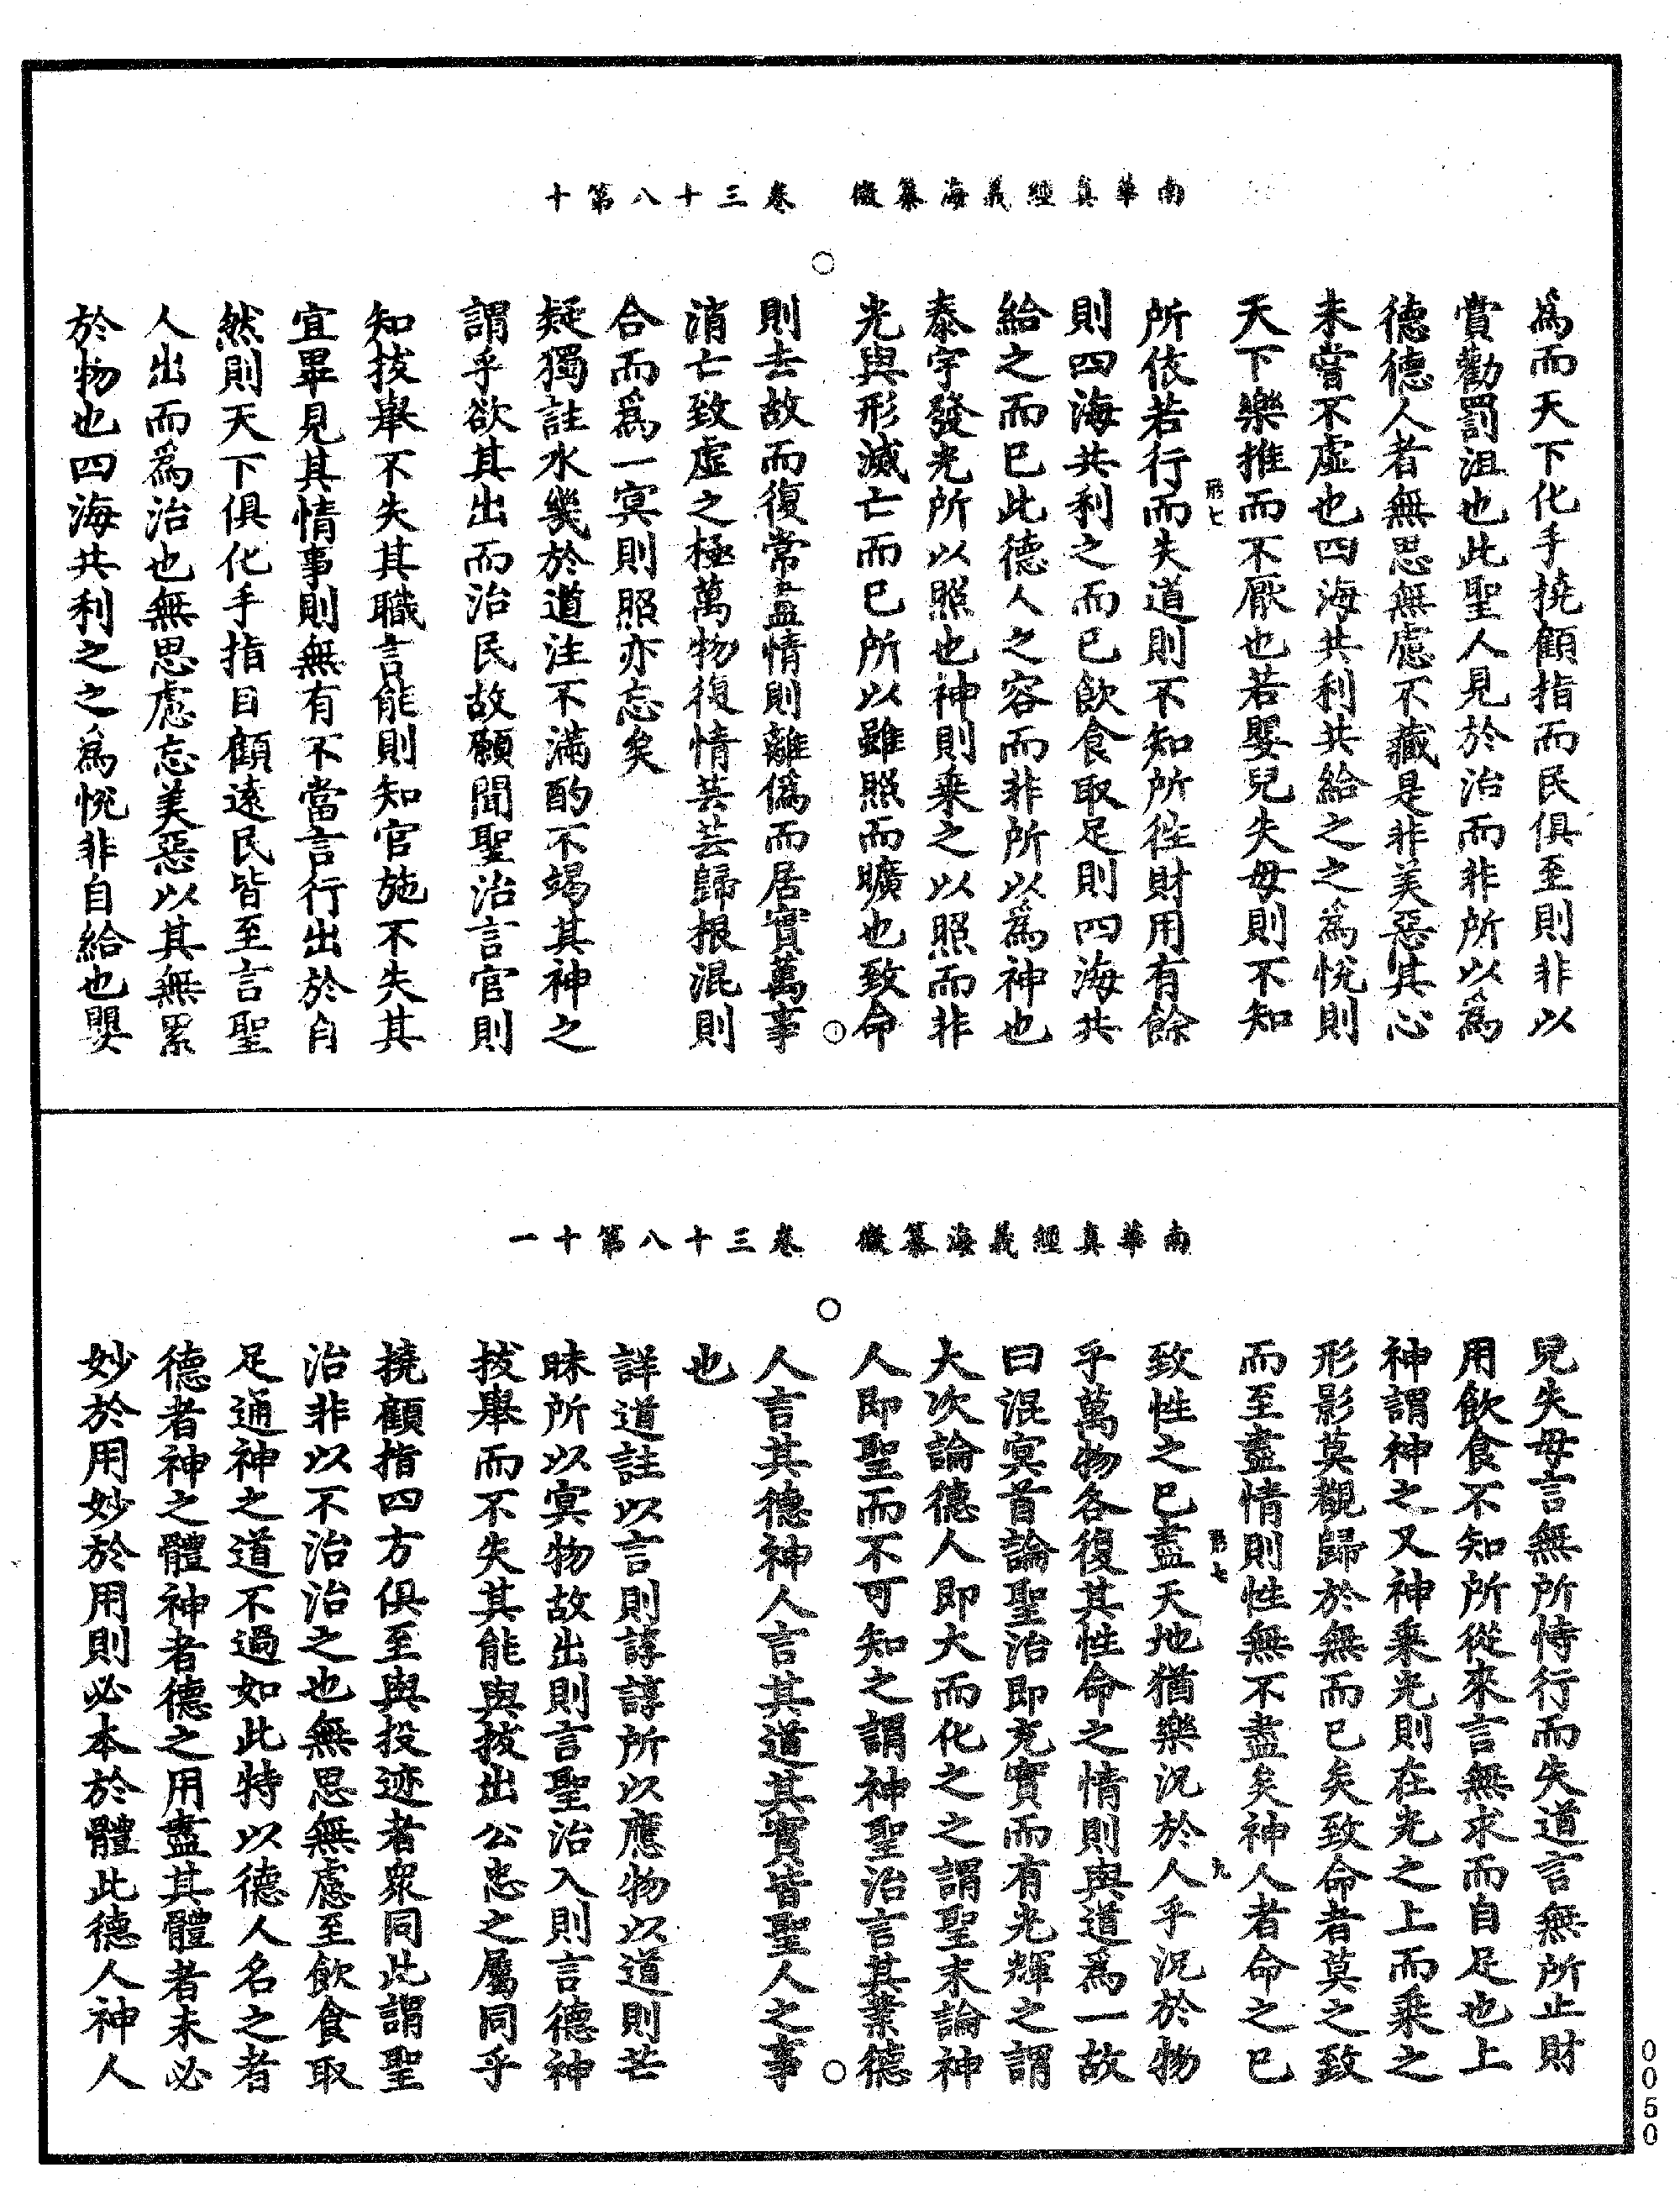 南華真經義海纂微　卷三十八第十
爲而天下化手撓顧指而民俱至則非以
賞勸罰沮也此聖人見於治而非所以爲
德德人者無思無慮不藏是非美惡其心
未嘗不虛也四海共利共給之之爲悅則
天下樂推而不厭也若嬰兒失母則不知
所依若行而失道則不知所往財用有餘
則四海共利之而已飲食取足則四海共
給之而已此德人之容而非所以爲神也
泰宇發光所以照也神則乘之以照而非
光與形滅亡而已所以雖照而曠也致命
則去故而復常盡情則離僞而居實萬事
消亡致虛之極萬物復情芸芸歸根混則
合而爲一冥則照亦忘矣
疑獨註水幾於道注不滿酌不竭其神之
謂乎欲其出而治民故願聞聖治言官則
知拔舉不失其職言能則知官施不失其
宜畢見其情事則無有不當言行出於自
然則天下俱化手指目顧遠民皆至言聖
人出而爲治也無思慮忘美惡以其無累
於物也四海共利之之爲悅非自給也嬰
南華真經義海纂微　卷三十八第十一
兒失母言無所恃行而失道言無所止財
用飲食不知所從來言無求而自足也上
神謂神之又神乘光則在光之上而乘之
形影莫覩歸於無而已矣致命者莫之致
而至盡情則性無不盡矣神人者命之已
致性之已盡天地猶樂況於人乎況於物
乎萬物各復其性命之情則與道爲一故
曰混冥首論聖治即充實而有光輝之謂
大次論德人即大而化之之謂聖末論神
人即聖而不可知之謂神聖治言其業德
人言其德神人言其道其實皆聖人之事
也
詳道註以言則諄諄所以應物以道則芒
昧所以冥物故出則言聖治入則言德神
拔舉而不失其能與拔出公忠之屬同乎
撓顧指四方俱至與投迹者衆同此謂聖
治非以不治治之也無思無慮至飲食取
足通神之道不過如此特以德人名之者
德者神之體神者德之用盡其體者未必
妙於用妙於用則必本於體此德人神人
0050